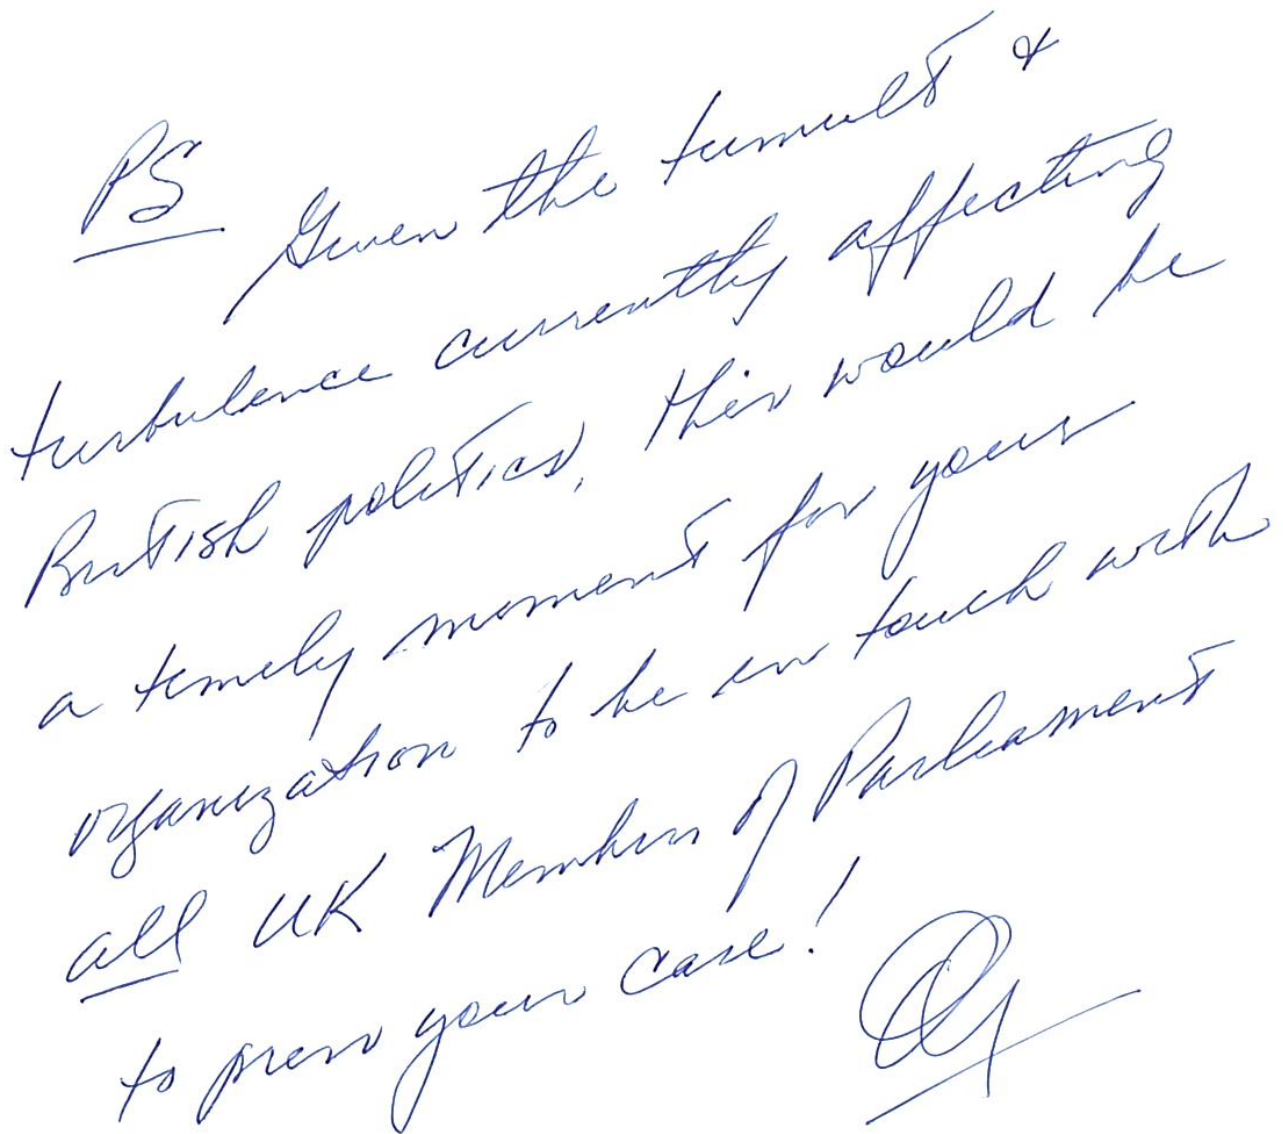 PS Given the tumult &
turbulence currently affecting
British politics, this would be
a timely moment for your
organization to be in touch with
all UK Members of Parliament
to press your case!